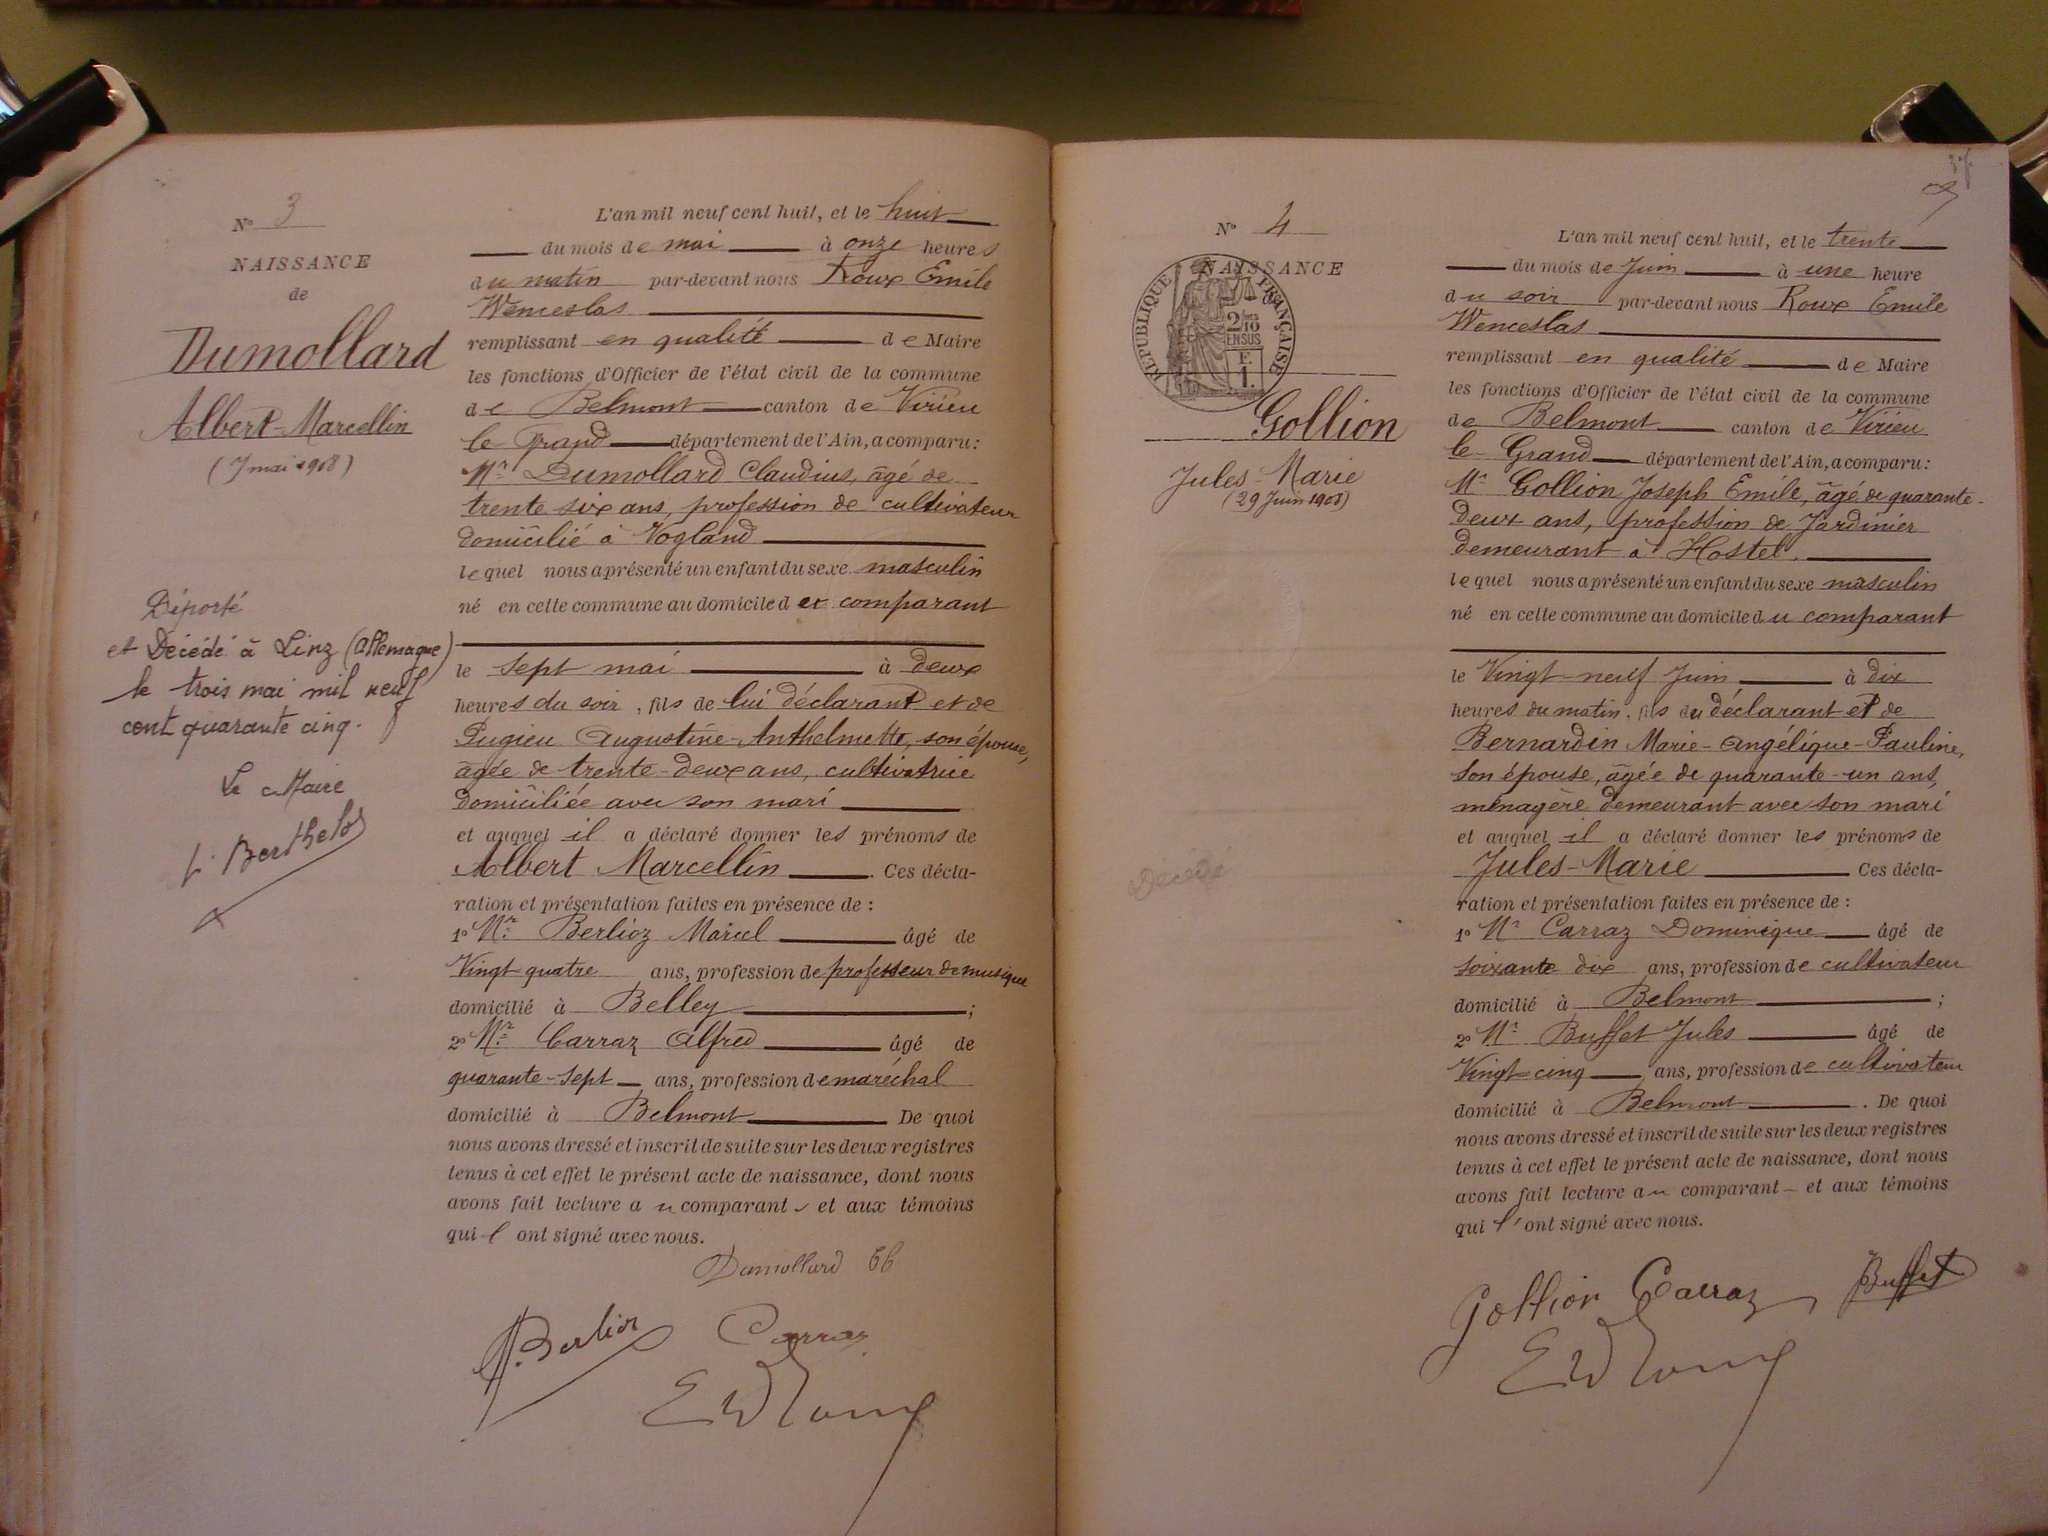 N° 3
NAISSANCE
de
Dumollard
Albert-Marcellin
(7 mai 1908)
Déporté
et Décédé à Linz (Allemagne)
le trois mai mil neuf
cent quarante cinq.
Le Maire
Berthelot
L'an mil neuf cent huit, et le huit
du mois de mai à onze heures
du matin par-devant nous Roux Emile
Wenceslas
remplissant en qualité de Maire
les fonctions d'Officier de l'état civil de la commune
de Belmont canton de Virieu
le Grand département de l'Ain, a comparu :
Mr Dumollard Claudius, âgé de
trente six ans, profession de cultivateur
domicilié à Vogland
lequel nous a présenté un enfant du sexe masculin
né en cette commune au domicile du comparant
le sept mai à deux
heures du soir, fils de lui déclarant et de
Pugieu Augustine-Anthelmette, son épouse,
âgée de trente-deux ans, cultivatrice
domiciliée avec son mari
et auquel il a déclaré donner les prénoms de
Albert Marcellin. Ces décla-
ration et présentation faites en présence de :
1° Mr Berlioz Marcel âgé de
Vingt quatre ans, profession de professeur de musique
domicilié à Belley ;
2° Mr Carraz Alfred âgé de
quarante-sept ans, profession de maréchal
domicilié à Belmont De quoi
nous avons dressé et inscrit de suite sur les deux registres
tenus à cet effet le présent acte de naissance, dont nous
avons fait lecture au comparant et aux témoins
qui l'ont signé avec nous.
Dumollard
M. Berlioz Carraz
E W Roux
N° 4
NAISSANCE
RÉPUBLIQUE FRANÇAISE
2/10
EN SUS
F.
1.
Gollion
Jules-Marie
(29 Juin 1908)
Décédé
L'an mil neuf cent huit, et le trente
du mois de Juin à une heure
du soir par-devant nous Roux Emile
Wenceslas
remplissant en qualité de Maire
les fonctions d'Officier de l'état civil de la commune
de Belmont canton de Virieu
le Grand département de l'Ain, a comparu :
Mr Gollion Joseph Emile, âgé de quarante-
deux ans, profession de Jardinier
demeurant à Hostel.
lequel nous a présenté un enfant du sexe masculin
né en cette commune au domicile du comparant
le Vingt-neuf Juin à dix
heures du matin, fils du déclarant et de
Bernardin Marie-Angélique-Pauline,
son épouse, âgée de quarante-un ans,
ménagère demeurant avec son mari
et auquel il a déclaré donner les prénoms de
Jules-Marie Ces décla-
ration et présentation faites en présence de :
1° Mr Carraz Dominique âgé de
soixante dix ans, profession de cultivateur
domicilié à Belmont ;
2° Mr Buffet Jules âgé de
Vingt-cinq ans, profession de cultivateur
domicilié à Belmont. De quoi
nous avons dressé et inscrit de suite sur les deux registres
tenus à cet effet le présent acte de naissance, dont nous
avons fait lecture au comparant et aux témoins
qui l'ont signé avec nous.
Gollion Carraz Buffet
E W Roux